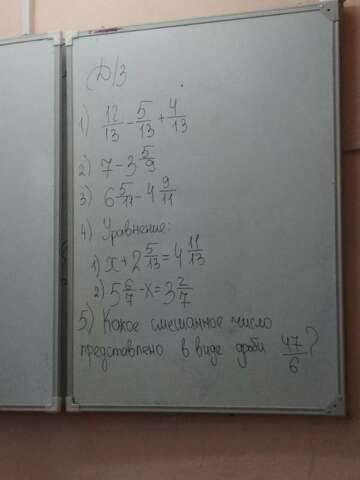 Д/З
1) 12/13 - 5/13 + 4/13
2) 7 - 3 5/9
3) 6 5/11 - 4 9/11
4) Уравнение:
1) x + 2 5/13 = 4 11/13
2) 5 6/7 - x = 3 2/7
5) Какое смешанное число
представлено в виде дроби 47/6?